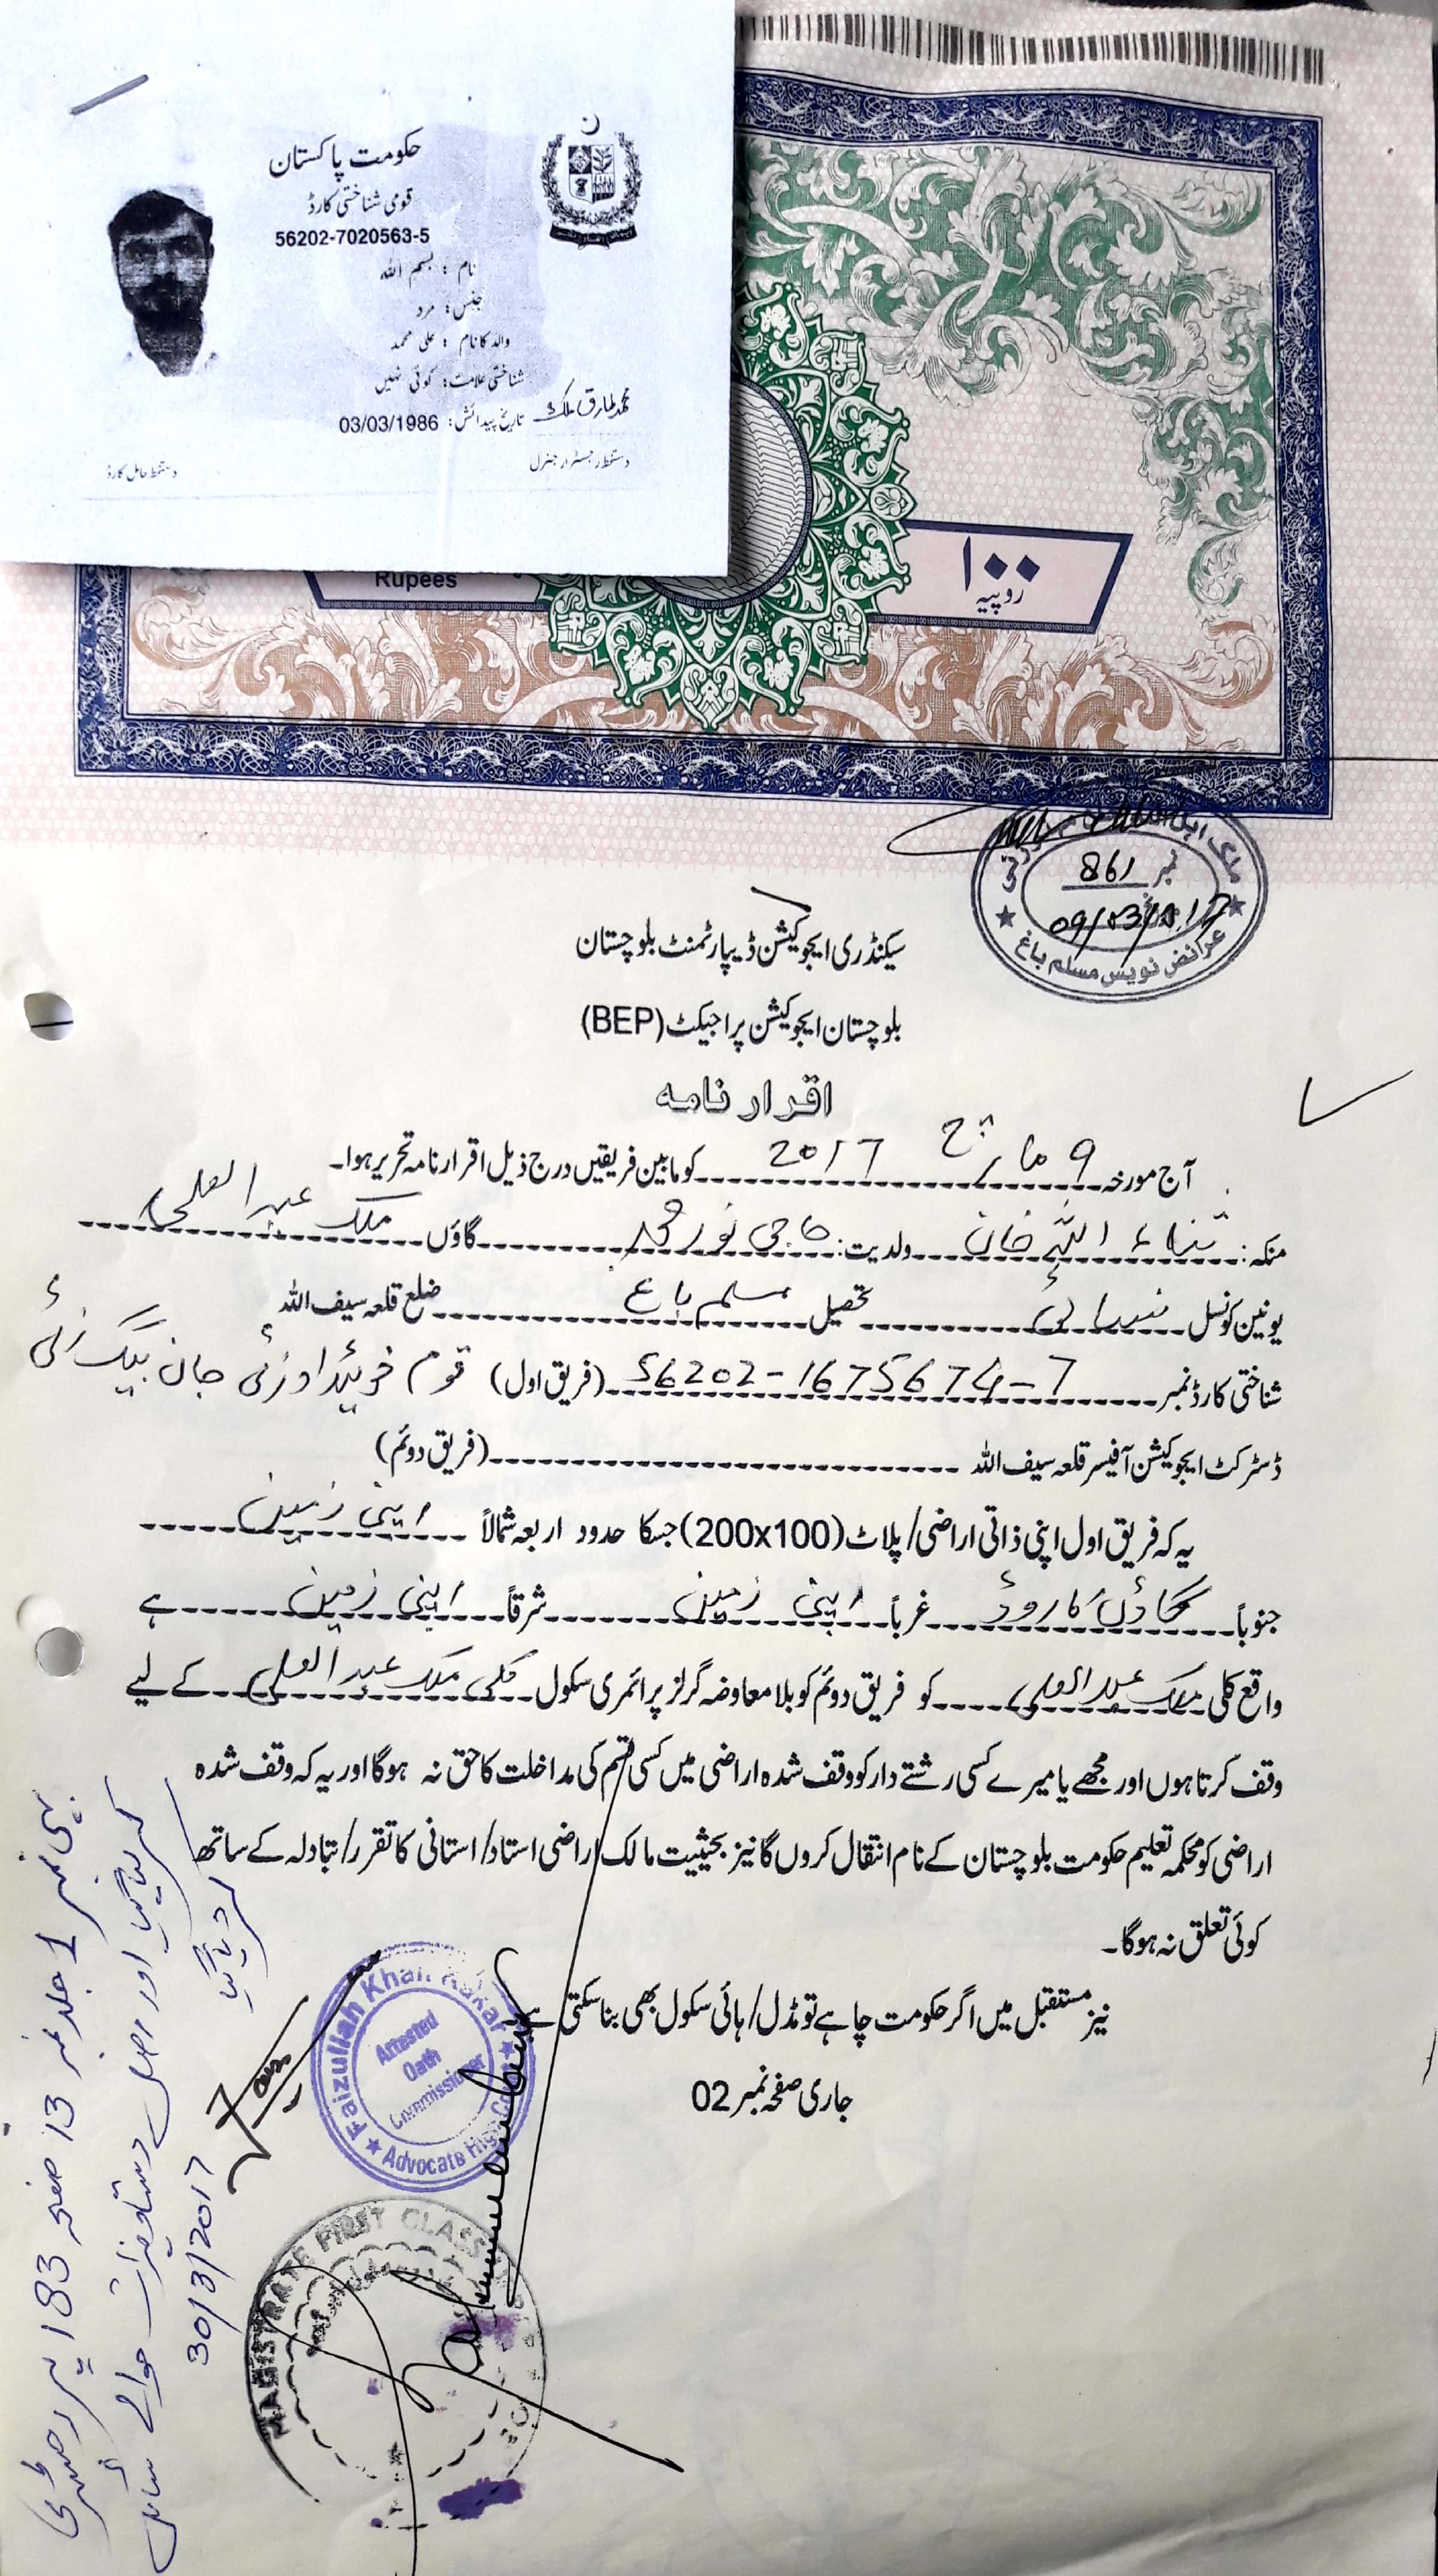 حکومت پاکستان
قومی شناختی کارڈ
56202-7020563-5
نام : بسم اللہ
جنس: مرد
والد کا نام : علی محمد
شناختی علامت: کوئی نہیں
تاریخ پیدائش: 03/03/1986
محمد طارق ملک
دستخط رجسٹرار جنرل
دستخط حامل کارڈ
Rupees
۱۰۰
روپیہ
نمبر 861
09/03/2017
عرائض نویس مسلم باغ
سیکنڈری ایجوکیشن ڈیپارٹمنٹ بلوچستان
بلوچستان ایجوکیشن پراجیکٹ (BEP)
اقرار نامہ
آج مورخہ 9 مارچ 2017 کو مابین فریقین درج ذیل اقرار نامہ تحریر ہوا۔
منکہ: ثناء اللہ خان ولدیت: حاجی نور محمد گاؤں ملک عبدالعلی
یونین کونسل تحصیل مسلم باغ ضلع قلعہ سیف اللہ
شناختی کارڈ نمبر 56202-1675674-7 (فریق اول) قوم
ڈسٹرکٹ ایجوکیشن آفیسر قلعہ سیف اللہ (فریق دوئم)
یہ کہ فریق اول اپنی ذاتی اراضی/پلاٹ (200x100) جسکا حدود اربعہ شمالاً اپنی زمین
جنوباً گاؤں کا روڈ غرباً اپنی زمین شرقاً اپنی زمین ہے
واقع کلی ملک عبدالعلی کو فریق دوئم کو بلا معاوضہ گرلز پرائمری سکول کلی ملک عبدالعلی کے لیے
وقف کرتا ہوں اور مجھے یا میرے کسی رشتے دار کو وقف شدہ اراضی میں کسی قسم کی مداخلت کا حق نہ ہوگا اور یہ کہ وقف شدہ
اراضی کو محکمہ تعلیم حکومت بلوچستان کے نام انتقال کروں گا نیز بحیثیت مالک اراضی استاد/استانی کا تقرر/تبادلہ کے ساتھ
کوئی تعلق نہ ہوگا۔
نیز مستقبل میں اگر حکومت چاہے تو مڈل/ہائی سکول بھی بنا سکتی ہے
جاری صفحہ نمبر 02
Faizullah Khan Kakar
Attested
Oath
Commissioner
Advocate High Court
MAGISTRATE FIRST CLASS
بہی نمبر 1 جلد نمبر 13 صفحہ 183 پر رجسٹری
کیا گیا اور اصل دستاویزات حوالے سائل
کر دیا گیا
30/3/2017